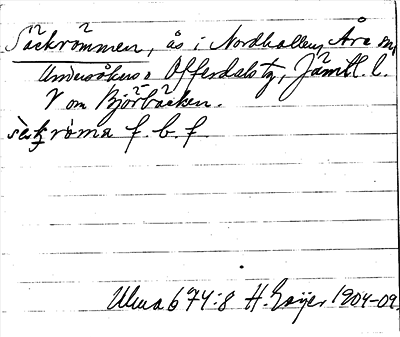 Säckrömmen, ås i Nordhallen, Åre sn,
Undersåkers o Offerdals tg, Jämtl. l.
V om Björbacken.
sèkröma f. b. f.
Ulma 674:8 H. Geijer 1904-09.